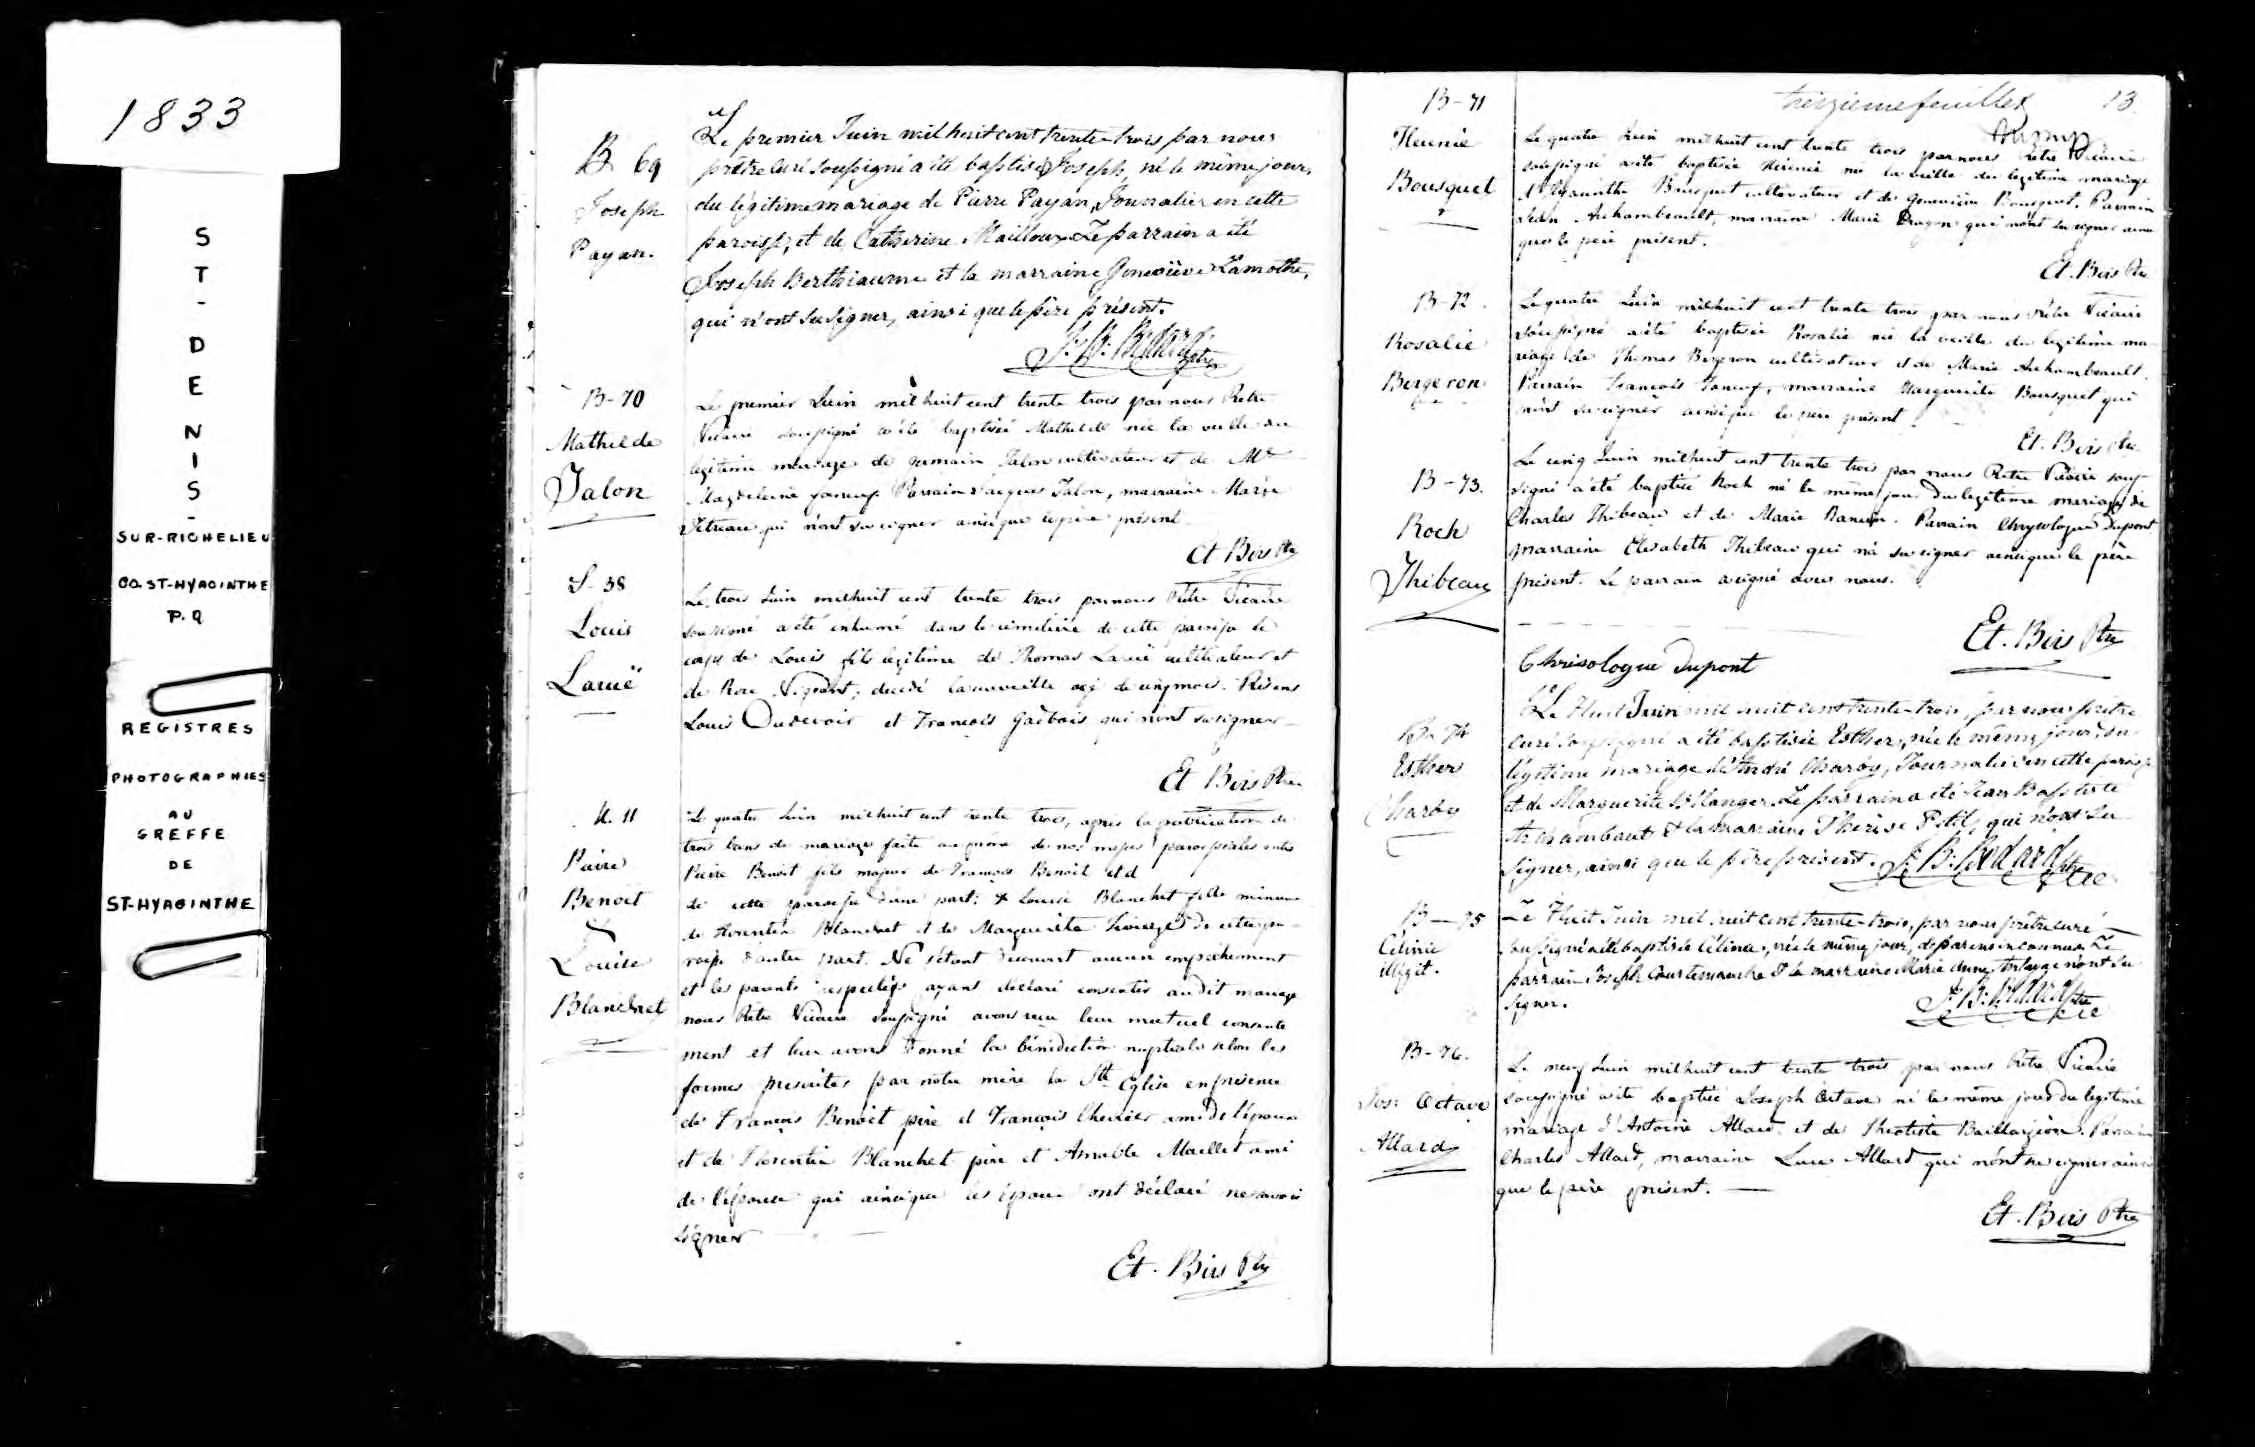 1833
S
T
-
D
E
N
I
S
-
SUR-RICHELIEU
CO. ST-HYACINTHE
P.Q
REGISTRES
PHOTOGRAPHIES
AU
GREFFE
DE
ST-HYACINTHE
B 69
Joseph
Payan.
Le premier Juin mil huit cent trente-trois par nous
prêtre curé soussigné a été baptisé Joseph, né le même jour,
du légitime mariage de Pierre Payan, Journalier en cette
paroisse, et de Catherine Mailloux. Le parrain a été
Joseph Berthiaume et la marraine Geneviève Lamothe,
qui n'ont su signer, ainsi que le père présent.
J: B: Bédard Ptre
B-70
Mathilde
Jalon
Le premier Juin mil huit cent trente trois par nous Prêtre
Vicaire soussigné a été baptisée Mathilde née la veille du
légitime mariage de Germain Jalon cultivateur et de Me
Magdeleine Parrain Jacques Jalon, marraine Marie
qui n'ont su signer ainsi que le père présent.
Et Bois Ptre
S-38
Louis
Larue
Le trois Juin mil huit cent trente trois par nous Prêtre Vicaire
soussigné a été inhumé dans le cimetière de cette paroisse le
corps de Louis fils légitime de Thomas Larue cultivateur et
de Rose Vignant, décédé la veille agé de cinq mois. Présens
Louis Dudevoir et François Gaibois qui n'ont su signer
Et Bois Ptre
M. 11
Pierre
Benoit
&
Louise
Blanchet
Le quatre Juin mil huit cent trente trois, après la publication de
trois bans de mariage faite au prône de nos messes paroissiales entre
Pierre Benoit fils majeur de François Benoit et d
de cette paroisse d'une part; & Louise Blanchet fille mineure
de Florentin Blanchet et de Marguerite de cette pa-
roisse d'autre part. Ne s'étant découvert aucun empêchement
et les parents respectifs ayans déclaré consentir au dit mariage
nous Prêtre Vicaire soussigné avons reçu leur mutuel consente
ment et leur avons donné la bénédiction nuptiale selon les
formes prescrites par notre mère la Ste Eglise en présence
de François Benoit père et François Chevrier ami de l'époux
et de Florentin Blanchet père et Amable Maillet ami
de l'épouse qui ainsi que les époux ont déclaré ne savoir
signer
Et. Bois Ptre
treizieme feuillet 13
B-71
Bousquet
Le quatre Juin mil huit cent trente trois par nous Prêtre Vicaire
soussigné a été baptisée née la veille du légitime mariage
d'Hyacinthe Bousquet cultivateur et de Geneviève Bousquet. Parrain
Jean Archambeault, marraine Marie Dragon qui n'ont su signer ainsi
que le père présent.
Et. Bois Ptre
B-72
Rosalie
Bergeron
Le quatre Juin mil huit cent trente trois par nous Prêtre Vicaire
soussigné a été baptisée Rosalie née la veille du légitime ma-
riage de Thomas Bergeron cultivateur et de Marie Archambeault.
Parrain François marraine Marguerite Bousquet qui
n'ont su signer ainsi que le père présent.
Et. Bois Ptre
B-73.
Roch
Thibeau
Le cinq Juin mil huit cent trente trois par nous Prêtre Vicaire sous-
signé a été baptisé Roch né le même jour du légitime mariage de
Charles Thibeau et de Marie Parrain Chrysologue Dupont
marraine Elisabeth Thibeau qui n'a su signer ainsi que le père
présent. Le parrain a signé avec nous.
Et. Bois Ptre
Chrisologue Dupont
B-74
Esther
Charby
Le Huit Juin mil huit cent trente-trois, par nous prêtre
curé soussigné a été baptisée Esther, née le même jour, du
légitime mariage d'André Charby, Journalier en cette paroisse
et de Marguerite Bélanger. Le parrain a été Jean Baptiste
Archambault & la marraine Thérèse Petit, qui n'ont su
signer, ainsi que le père présent. J: B: Bédard Ptre
B-75
Céline
illégit.
Le Huit Juin mil huit cent trente-trois, par nous prêtre curé
soussigné a été baptisée Célina, née le même jour, de parens inconnus. Le
parrain Joseph Courtemanche & la marraine Marie n'ont su
signer.
J: B: Bédard Ptre
B-76.
Jos: Octave
Allard
Le neuf Juin mil huit cent trente trois par nous Prêtre Vicaire
soussigné a été baptisé Joseph Octave né le même jour du légitime
mariage d'Antoine Allard et de Théotiste Baillargeon. Parrain
Charles Allard, marraine Luce Allard qui n'ont su signer ainsi
que le père présent.
Et. Bois Ptre